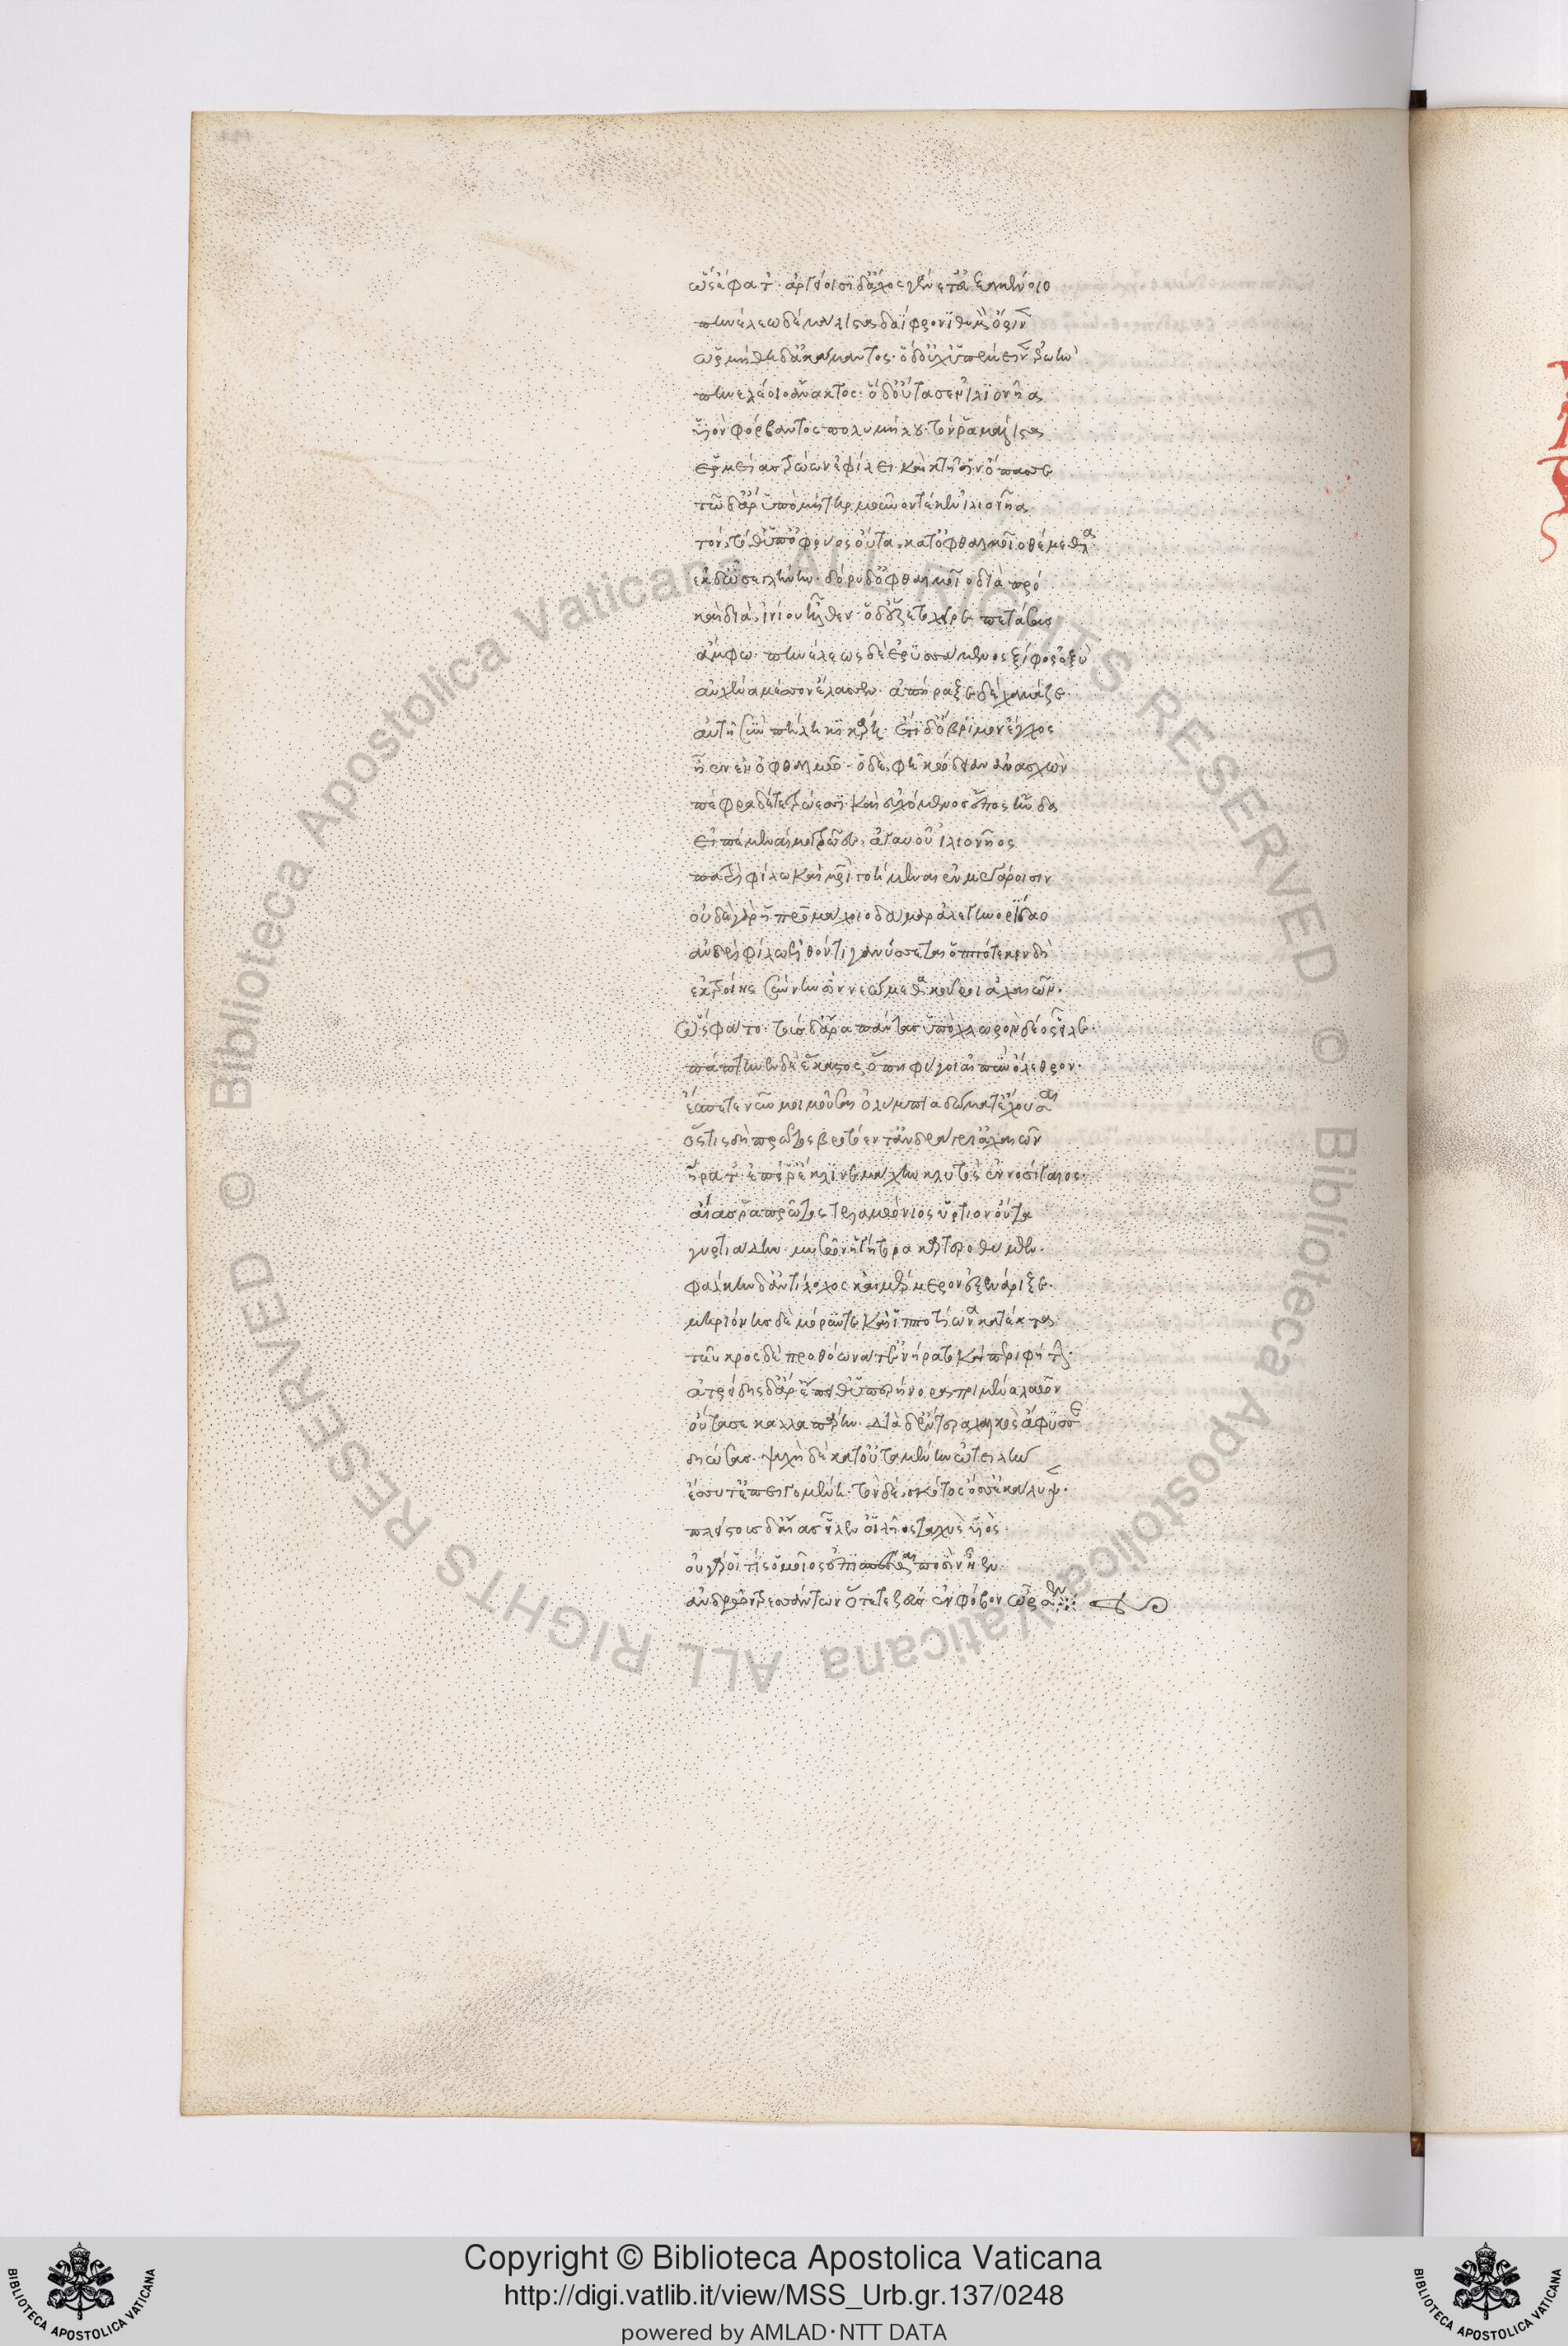 ὣς ἔφατ'· ἀργείοισι δ' ἄχος γένετ' εὐξαμένοιο
πηνέλεω δὲ μάλιστα δαΐφρονι θυμὸν ὄρινεν
ὡρμήθη δ' ἀκάμαντος· ὁ δ' οὐχ ὑπέμεινεν ἐρωὴν
πηνελέοιο ἄνακτος· ὁ δ' οὔτασεν ἰλιονῆα
υἱὸν φόρβαντος πολυμήλου· τόν ῥα μάλιστα
ἑρμείας τρώων ἐφίλει καὶ κτῆσιν ὄπασσε
τῶ δ' ἄρ' ὑπὸ μήτηρ μοῦνον τέκεν ἰλιονῆα
τόν τόθ' ὑπ' ὀφρύος οὖτα κατ' ὀφθαλμοῖο θέμεθλα
ἐκ δ' ὦσε γλήνην· δόρυ δ' ὀφθαλμοῖο διὰ πρό
καὶ διὰ ἰνίου ἦλθεν· ὁ δ' ἕζετο χεῖρε πετάσσας
ἄμφω· πηνέλεως δὲ ἐρυσσάμενος ξίφος ὀξὺ
αὐχένα μέσσον ἔλασσεν· ἀπήραξε δὲ χαμᾶζε
αὐτῆ σὺν πήληκι κάρη· ἔτι δ' ὄβριμον ἔγχος
ἦεν ἐν ὀφθαλμῶ· ὁ δὲ φὴ κώδειαν ἀνασχὼν
πέφραδέ τε τρώεσσι καὶ εὐχόμενος ἔπος ηὔδα
εἰπέμεναί μοι τρῶες ἀγαυοῦ ἰλιονῆος
πατρὶ φίλω καὶ μητρὶ γοήμεναι ἐν μεγάροισιν
οὐδὲ γὰρ ἡ προμάχοιο δάμαρ ἀλεγηνορίδαο
ἀνδρὶ φίλω ἐλθόντι γανύσσεται ὁππότε κεν δὴ
ἐκ τροίης σὺν νηυσὶ νεώμεθα κοῦροι ἀχαιῶν.
ὣς φάτο· τοὺς δ' ἄρα πάντας ὑπὸ χλωρὸν δέος εἷλε·
πάπτηνεν δὲ ἕκαστος ὅπη φύγοι αἰπὺν ὄλεθρον·
ἔσπετε νῦν μοι μοῦσαι ὀλύμπια δώματ' ἔχουσαι
ὅστις δὴ πρῶτος βροτόεντ' ἀνδράγρι' ἀχαιῶν
ἤρατ' ἐπεί ῥ' ἔκλινε μάχην κλυτὸς ἐννοσίγαιος·
αἴας ῥα πρῶτος τελαμώνιος ὕρτιον οὖτα
γυρτιάδην· μυσῶν ἡγήτορα καρτεροθύμων·
φάλκην δ' ἀντίλοχος καὶ μέρμερον ἐξενάριξε·
μηριόνης δὲ μόρυν τε καὶ ἱπποτίωνα κατέκτα·
τεῦκρος δὲ προθόωνά τ' ἐνήρατο καὶ περιφήτην·
ἀτρείδης δ' ἄρ' ἔπειθ' ὑπερήνορα ποιμένα λαῶν
οὔτασε κὰλλαπάρην· διὰ δ' ἔντερα χαλκὸς ἄφυσσε
δηώσας· ψυχὴ δὲ κατ' οὐταμένην ὠτειλὴν
ἔσσυτ' ἐπειγομένη· τὸν δὲ σκότος ὄσσε κάλυψε·
πλείστους δ' αἴας εἷλεν ὀϊλῆος ταχὺς υἱὸς·
οὐ γάρ οἵ τις ὁμοῖος ἐπισπέσθαι ποσὶν ἦεν
ἀνδρῶν τρεσσάντων ὅτε τε ζεὺς ἐν φόβον ὦρσεν
Copyright © Biblioteca Apostolica Vaticana
http://digi.vatlib.it/view/MSS_Urb.gr.137/0248
powered by AMLAD·NTT DATA